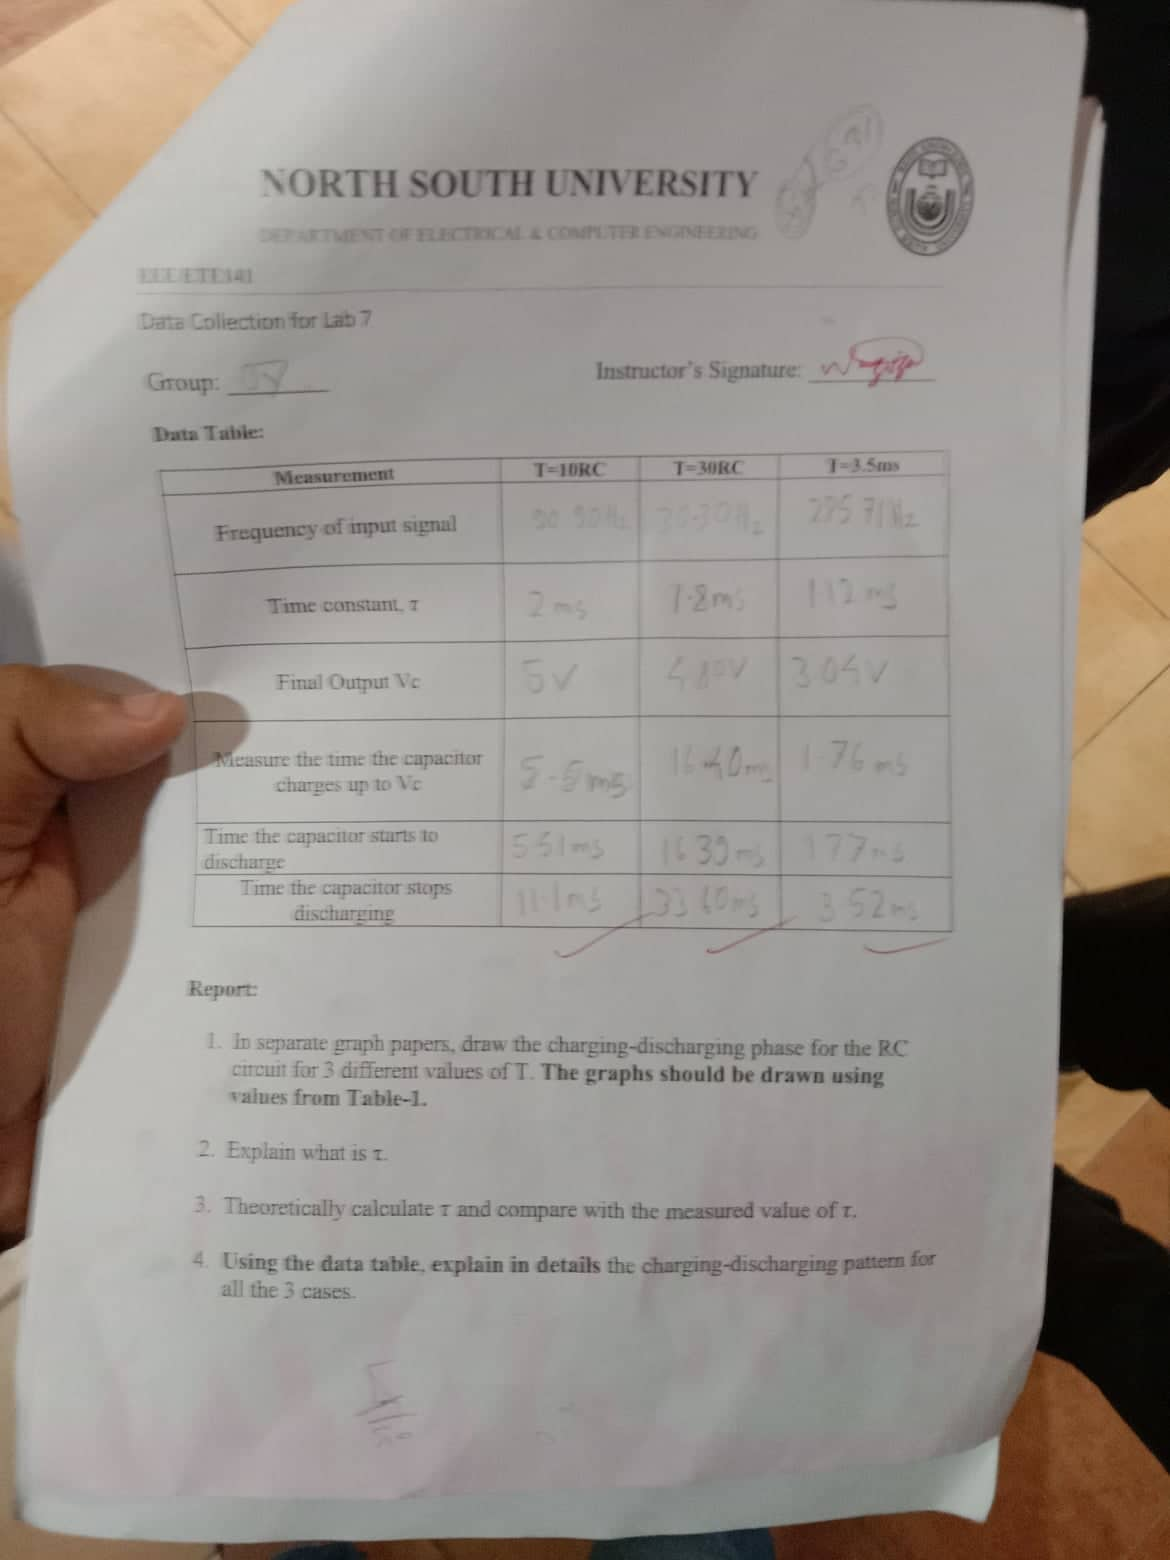 NORTH SOUTH UNIVERSITY
DEPARTMENT OF ELECTRICAL & COMPUTER ENGINEERING
EEE/ETE141
Data Collection for Lab 7
Group:
Instructor's Signature:
Data Table:
Measurement T=10RC T=30RC T=3.5ms
Frequency of input signal 90.90Hz 30.30Hz 285.71Hz
Time constant, τ 2ms 1.12ms
Final Output Vc 5V 4.80V 3.04V
Measure the time the capacitor
charges up to Vc 5.5ms 16.40ms 1.76ms
Time the capacitor starts to
discharge 5.51ms 16.39ms 1.77ms
Time the capacitor stops
discharging 11.1ms 33.60ms 3.52ms
Report:
1. In separate graph papers, draw the charging-discharging phase for the RC
circuit for 3 different values of T. The graphs should be drawn using
values from Table-1.
2. Explain what is τ.
3. Theoretically calculate τ and compare with the measured value of τ.
4. Using the data table, explain in details the charging-discharging pattern for
all the 3 cases.